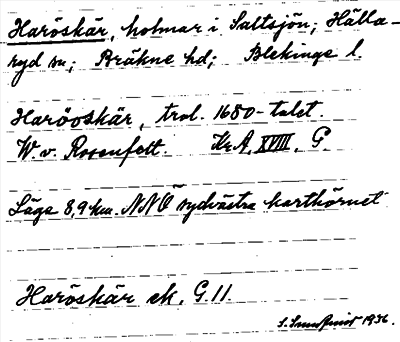 Haröskär, holmar i Saltsjön; Hälla-
ryd sn; Bräkne hd; Blekinge l.
Haröoskär, trol. 1680-talet.
W. v. Rosenfelt. Kr.A. XVIII. G.
Läge 8,9 km. NNO sydvästra karthörnet
Haröskär ek. G.11.
S. Sundquist 1936.